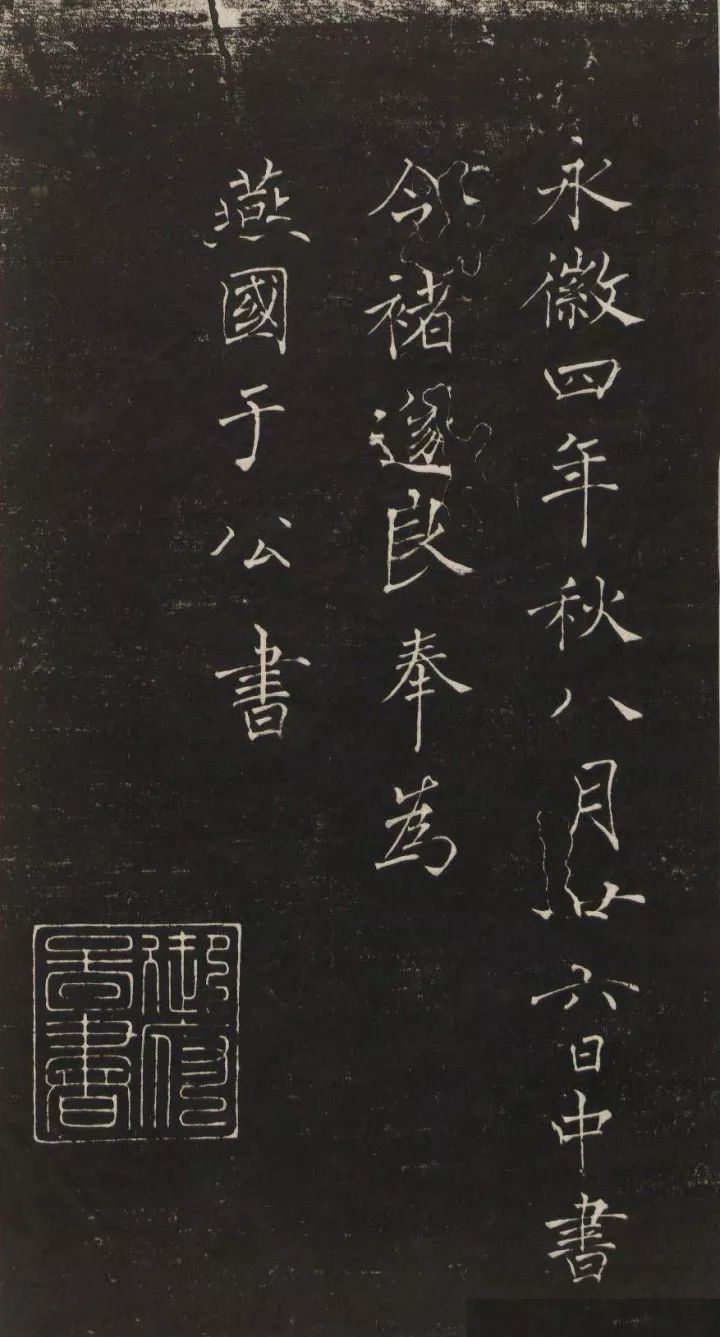 永徽四年秋八月廿六日中書
令褚遂良奉為
燕國于公書
御府
書